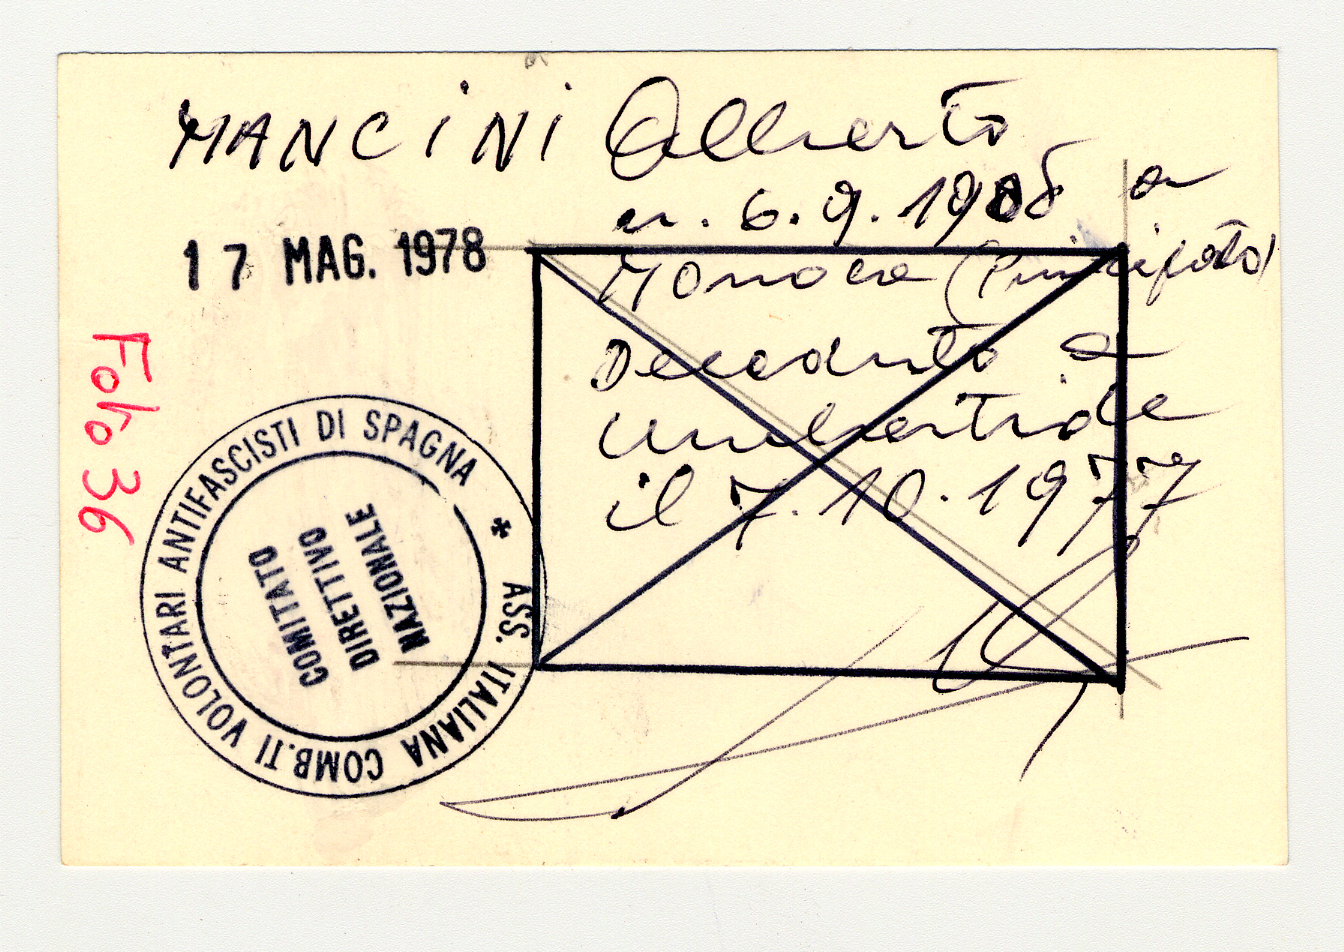 MANCINI Alberto
n. 6.9.1908 a
Monaco (Principato)
17 MAG. 1978
Deceduto a
Umbertide
il 7.10.1977
Foto 36
ASS. ITALIANA COMB.TI VOLONTARI ANTIFASCISTI DI SPAGNA *
COMITATO
DIRETTIVO
NAZIONALE